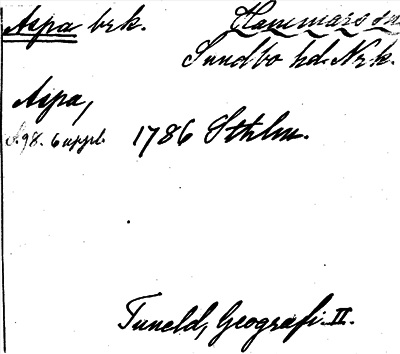 Aspa brk. Hammars sn
Sundbo hd. Nrk.
Aspa,
S. 98. 6 uppl. 1786 Sthlm.
Tuneld, Geografi. II.